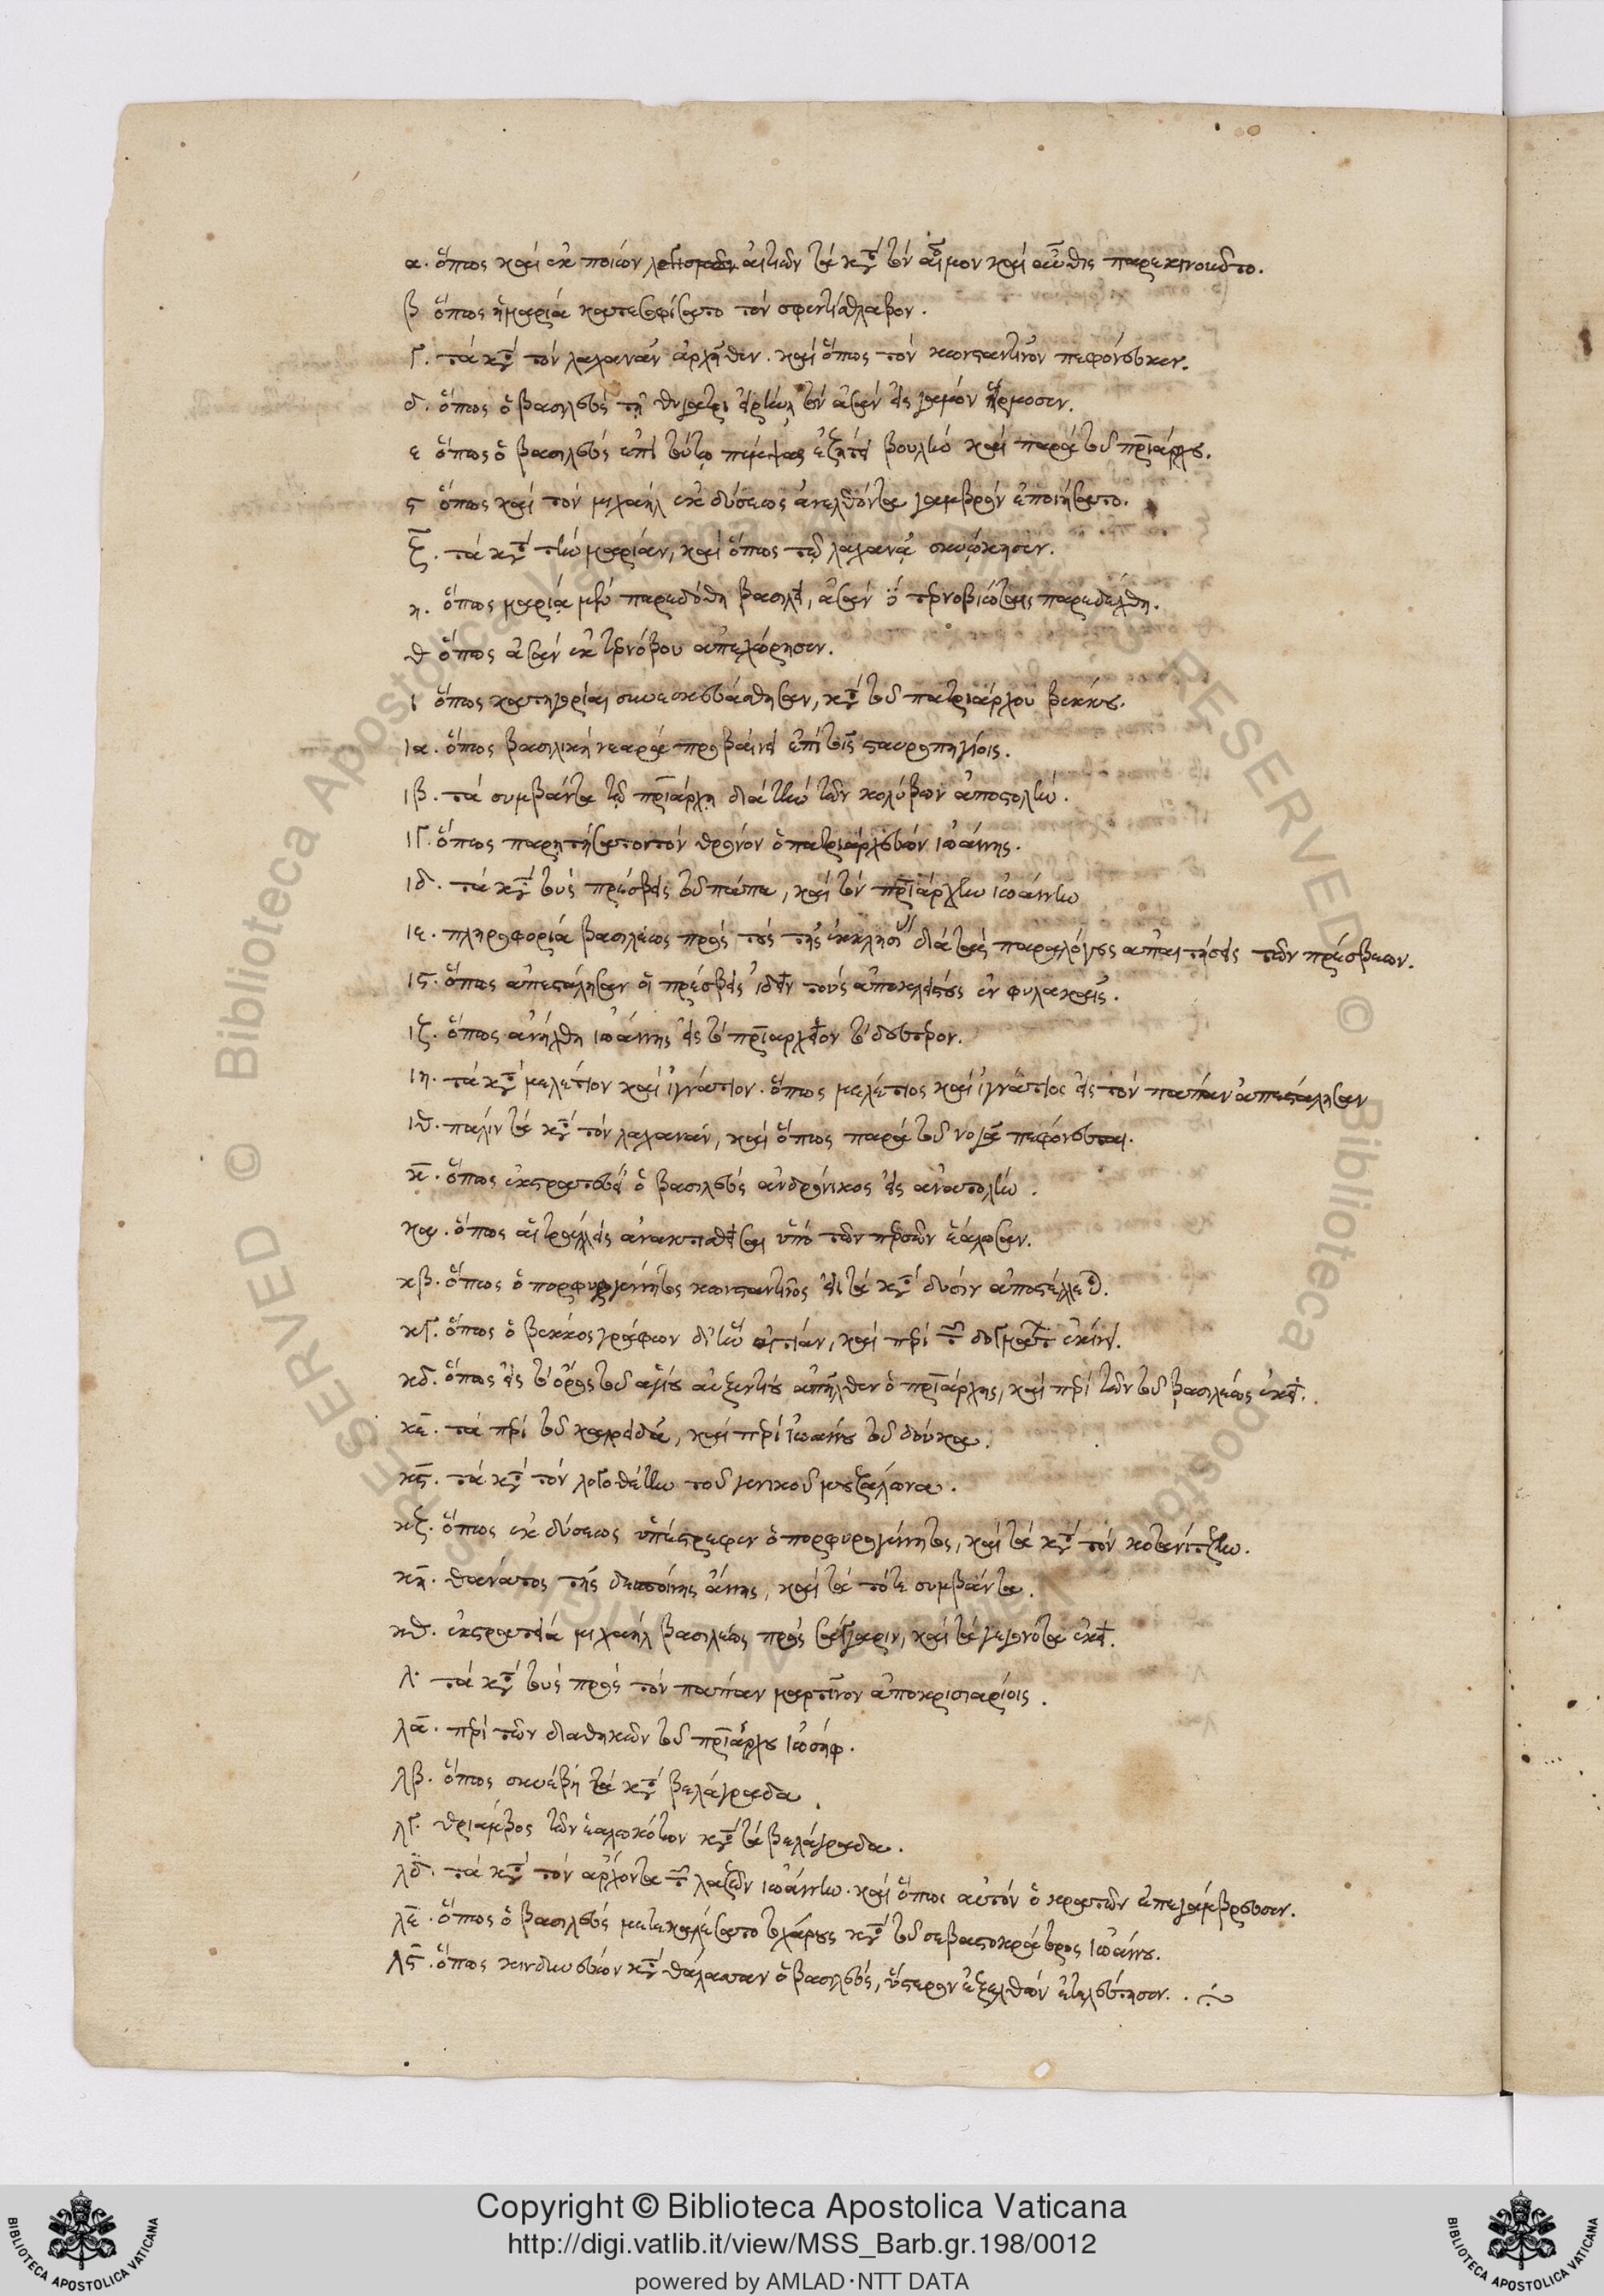 α. ὅπως καὶ ἐκ ποίων αἰτιῶν τὰ κατὰ τὸν αἷμον καὶ αὖθις παρεκινοῦντο.
β ὅπως ἡ μαρία κατεσοφίσατο τὸν σφεντίσθλαβον.
γ. τὰ κατὰ τὸν λαχανᾶν ἀρχῆθεν. καὶ ὅπως τὸν κωνσταντῖνον πεφόνευκεν.
δ. ὅπως ὁ βασιλεὺς τῇ θυγατρὶ εἰρήνῃ τὸν ἀσὰν εἰς γάμον ἥρμοσεν.
ε ὅπως ὁ βασιλεὺς ἐπὶ τούτῳ πέμψας ἐζήτει βουλὴν καὶ παρὰ τοῦ πατριάρχου.
ς ὅπως καὶ τὸν μιχαὴλ ἐκ δύσεως ἀνελθόντα γαμβρὸν ἐποιήσατο.
ζ. τὰ κατὰ τὴν μαρίαν, καὶ ὅπως τῷ λαχανᾷ συνῴκησεν.
η. ὅπως μαρία μὲν παρεδόθη βασιλεῖ, ἀσὰν δὲ τρνοβιώταις παρεδέχθη.
θ ὅπως ἀσὰν ἐκ τρνόβου ἀπεχώρησεν.
ι ὅπως κατηγορίαι συνεσκευάσθησαν, κατὰ τοῦ πατριάρχου βέκκου.
ια. ὅπως βασιλικὴ νεαρὰ προβαίνει ἐπὶ τοῖς σταυροπηγίοις.
ιβ. τὰ συμβάντα τῷ πατριάρχῃ διὰ τὴν τῶν κολύβων ἀποστολήν.
ιγ. ὅπως παρῃτήσατο τὸν θρόνον ὁ πατριαρχεύων ἰωάννης.
ιδ. τὰ κατὰ τοὺς πρέσβεις τοῦ πάπα, καὶ τὸν πατριάρχην ἰωάννην
ιε. πληροφορία βασιλέως πρὸς τοὺς τῆς ἐκκλησίας διὰ τὰς παραλόγους ἀπαιτήσεις τῶν πρέσβεων.
ις. ὅπως ἀπεστάλησαν οἱ πρέσβεις ἰδεῖν τοὺς ἀποκλείστους ἐν φυλακαῖς.
ιζ. ὅπως ἀνήχθη ἰωάννης εἰς τὸ πατριαρχεῖον τὸ δεύτερον.
ιη. τὰ κατὰ μελέτιον καὶ ἰγνάτιον. ὅπως μελέτιος καὶ ἰγνάτιος εἰς τὸν πάπαν ἀπεστάλησαν
ιθ. πάλιν τὰ κατὰ τὸν λαχανᾶν, καὶ ὅπως παρὰ τοῦ νογᾶ πεφόνευται.
κ. ὅπως ἐκστρατεύει ὁ βασιλεὺς ἀνδρόνικος εἰς ἀνατολήν.
κα. ὅπως αἱ τράλλεις ἀνακτισθεῖσαι ὑπὸ τῶν περσῶν ἑάλωσαν.
κβ. ὅπως ὁ πορφυρογέννητος κωνσταντῖνος εἰς τὰ κατὰ δύσιν ἀποστέλλεται.
κγ. ὅπως ὁ βέκκος γράφων δι' ἣν αἰτίαν, καὶ περὶ τῶν δογμάτων ἐκίνει.
κδ. ὅπως εἰς τὸ ὄρος τοῦ ἁγίου αὐξεντίου ἀπῆλθεν ὁ πατριάρχης, καὶ περὶ τῶν τοῦ βασιλέως ἐκεῖ.
κε. τὰ περὶ τοῦ καλειδᾶ, καὶ περὶ ἰωάννου τοῦ δούκα.
κς. τὰ κατὰ τὸν λογοθέτην τοῦ γενικοῦ μουζάλωνα.
κζ. ὅπως ἐκ δύσεως ὑπέστρεφεν ὁ πορφυρογέννητος, καὶ τὰ κατὰ τὸν κοτανίτζην.
κη. θάνατος τῆς δεσποίνης ἄννης, καὶ τὰ τότε συμβάντα.
κθ. ἐκστρατεία μιχαὴλ βασιλέως πρὸς σάγγαριν, καὶ τὰ γεγονότα ἐκεῖ.
λ. τὰ κατὰ τοὺς πρὸς τὸν πάπαν μαρτῖνον ἀποκρισιαρίοις.
λα. περὶ τῶν διαθηκῶν τοῦ πατριάρχου ἰωσήφ.
λβ. ὅπως συνέβη τὰ κατὰ βελάγραδα.
λγ. θρίαμβος τῶν ἑαλωκότων κατὰ τὰ βελάγραδα.
λδ. τὰ κατὰ τὸν ἄρχοντα τῶν λαζῶν ἰωάννην. καὶ ὅπως αὐτὸν ὁ κρατῶν ἐπεγάμβρευσεν.
λε. ὅπως ὁ βασιλεὺς μετεκαλέσατο τοχάρους κατὰ τοῦ σεβαστοκράτορος ἰωάννου.
λς. ὅπως κινδυνεύων κατὰ θάλασσαν ὁ βασιλεὺς, ὕστερον ἐξελθὼν ἐτελεύτησεν.
Copyright © Biblioteca Apostolica Vaticana
http://digi.vatlib.it/view/MSS_Barb.gr.198/0012
powered by AMLAD·NTT DATA